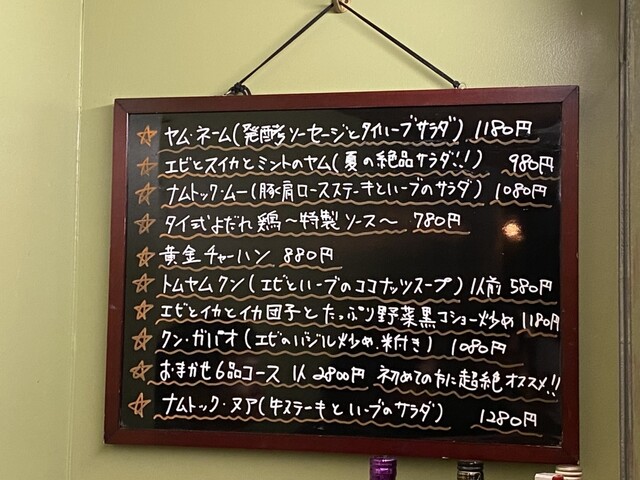 ☆ ヤム・ネーム(発酵ソーセージとタイハーブサラダ) 1180円
☆ エビとスイカとミントのヤム(夏の絶品サラダ!!) 980円
☆ ナムトック・ムー(豚肩ロースステーキとハーブのサラダ) 1080円
☆ タイ式よだれ鶏〜特製ソース〜 780円
☆ 黄金チャーハン 880円
☆ トムヤムクン(エビとハーブのココナッツスープ) 1人前 580円
☆ エビとイカとイカ団子とたっぷり野菜黒コショー炒め 1180円
☆ クン・ガパオ(エビのバジル炒め、米付き) 1080円
☆ おまかせ6品コース 1人 2800円 初めての方に超絶オススメ!!
☆ ナムトック・ヌア(牛ステーキとハーブのサラダ) 1280円